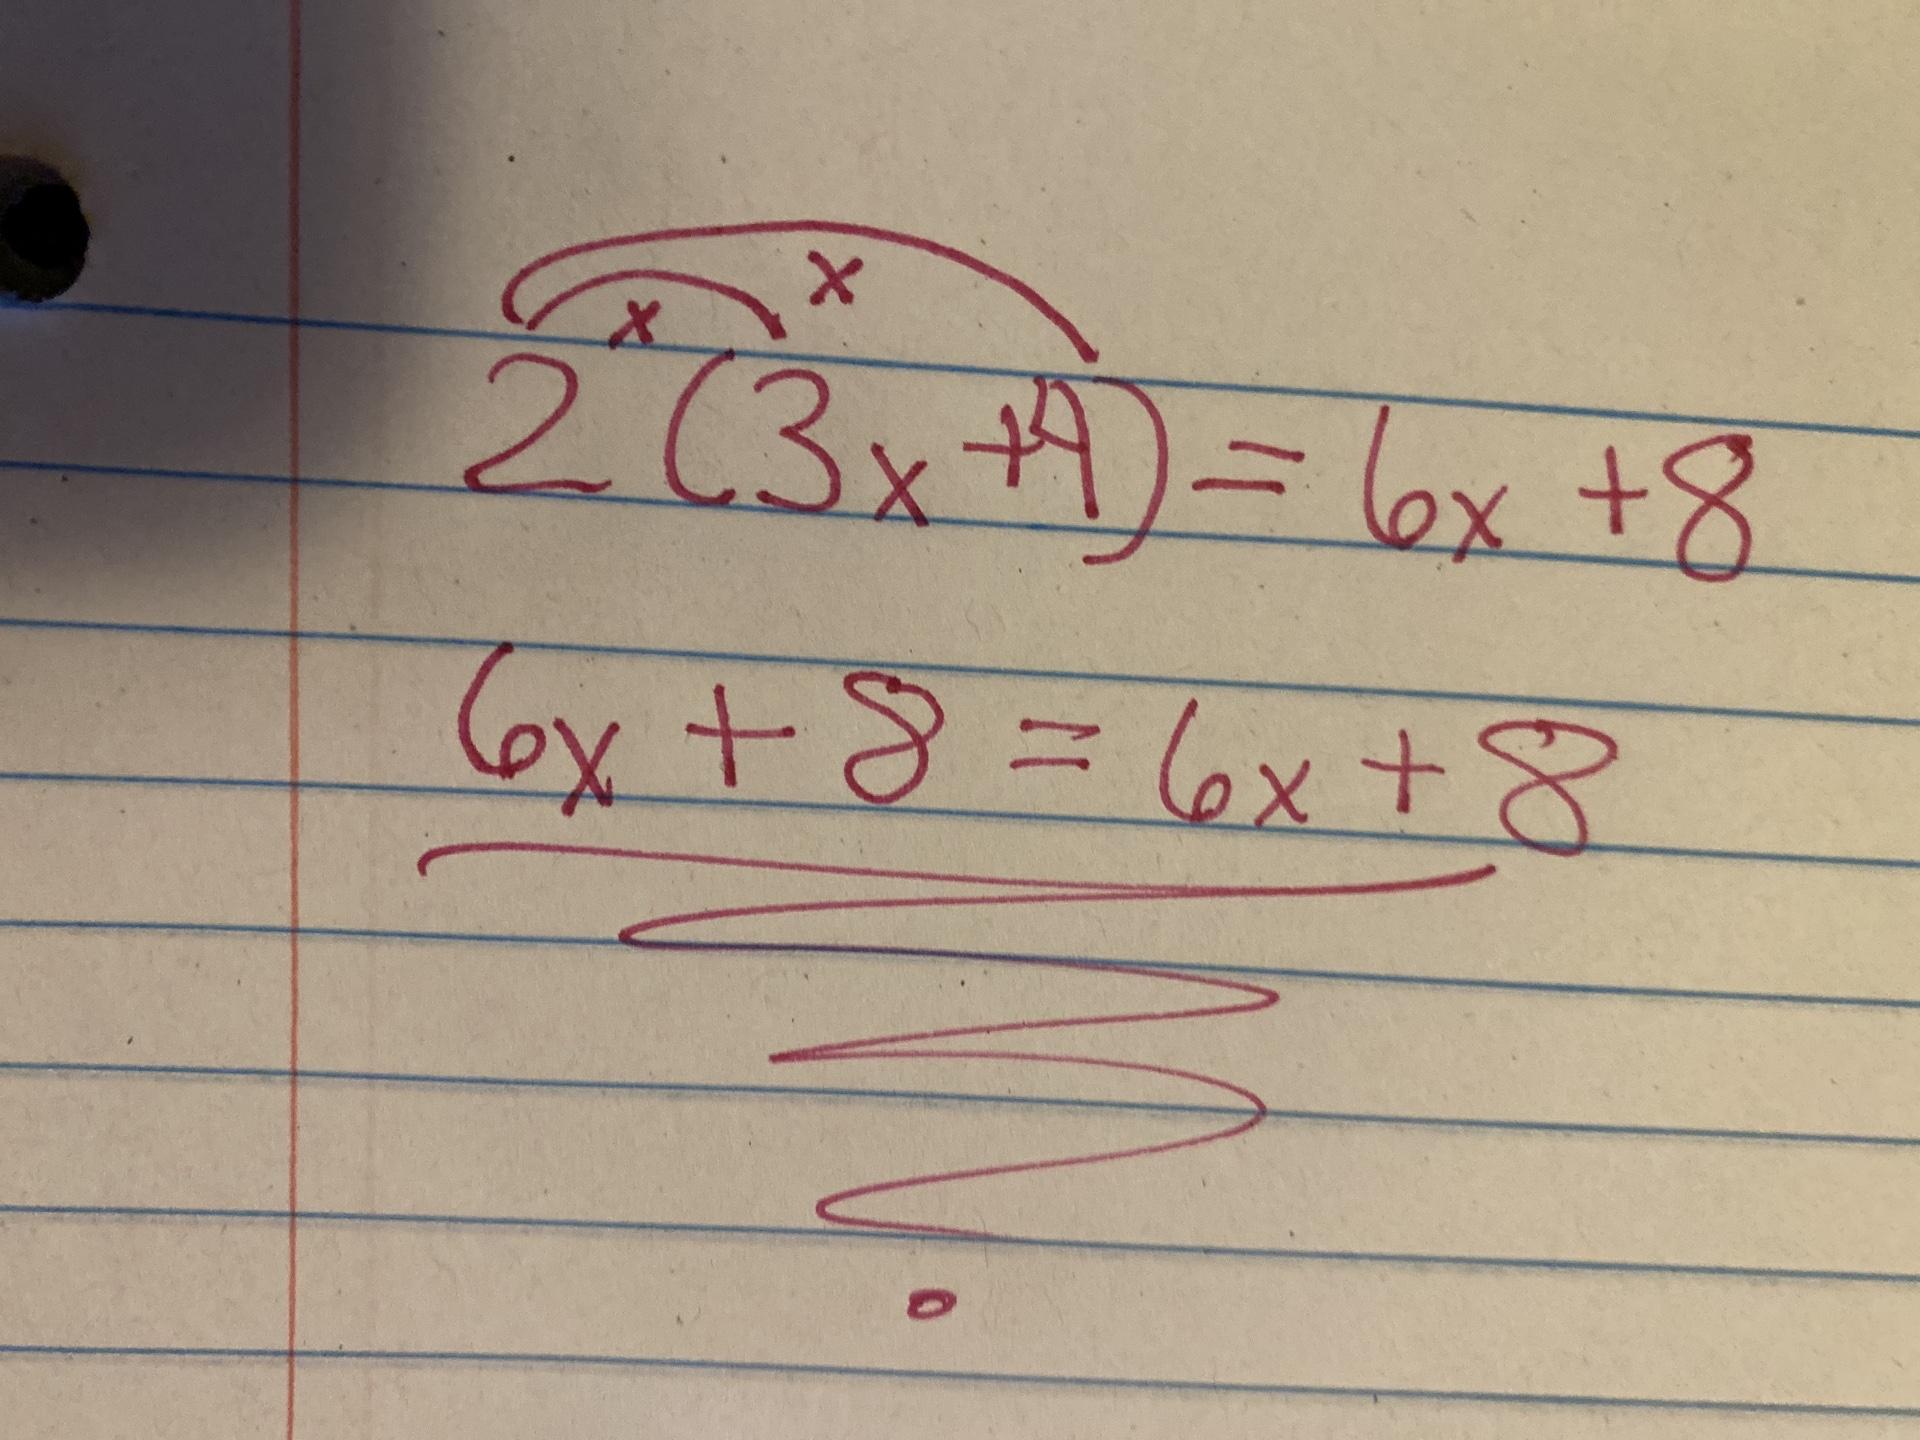 x x
2(3x+4)=6x+8
6x+8=6x+8